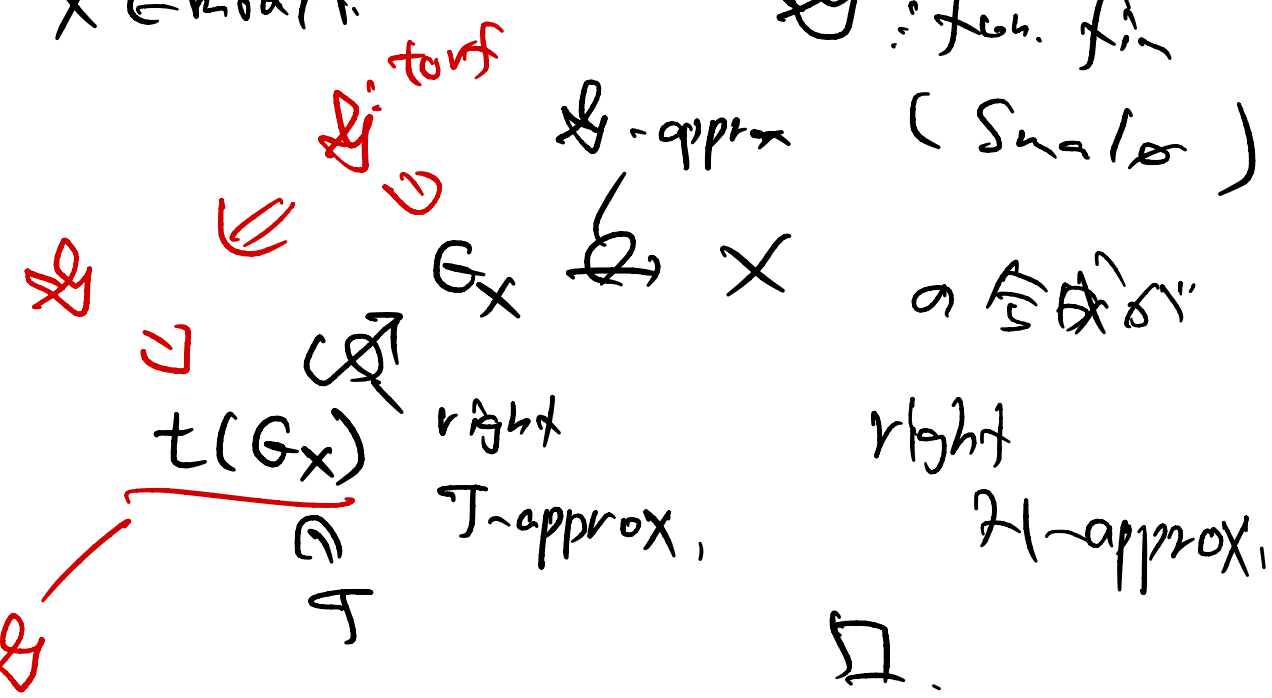 X ∈ mod Λ.
𝒢 : fun. fin
𝒢 : torf
𝒢-approx
(Smalø)
𝒢
G_X → X
の合成が
t(G_X)
right
right
𝒯-approx,
ℋ-approx,
𝒯
𝒢
□.